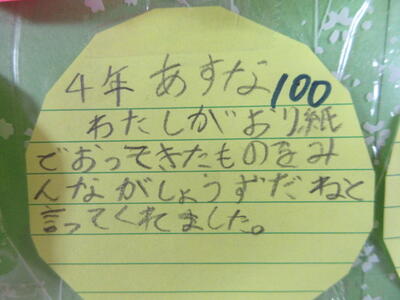 4年 あすな 100
わたしがおり紙
でおってきたものをみ
んながしょうずだねと
言ってくれました。